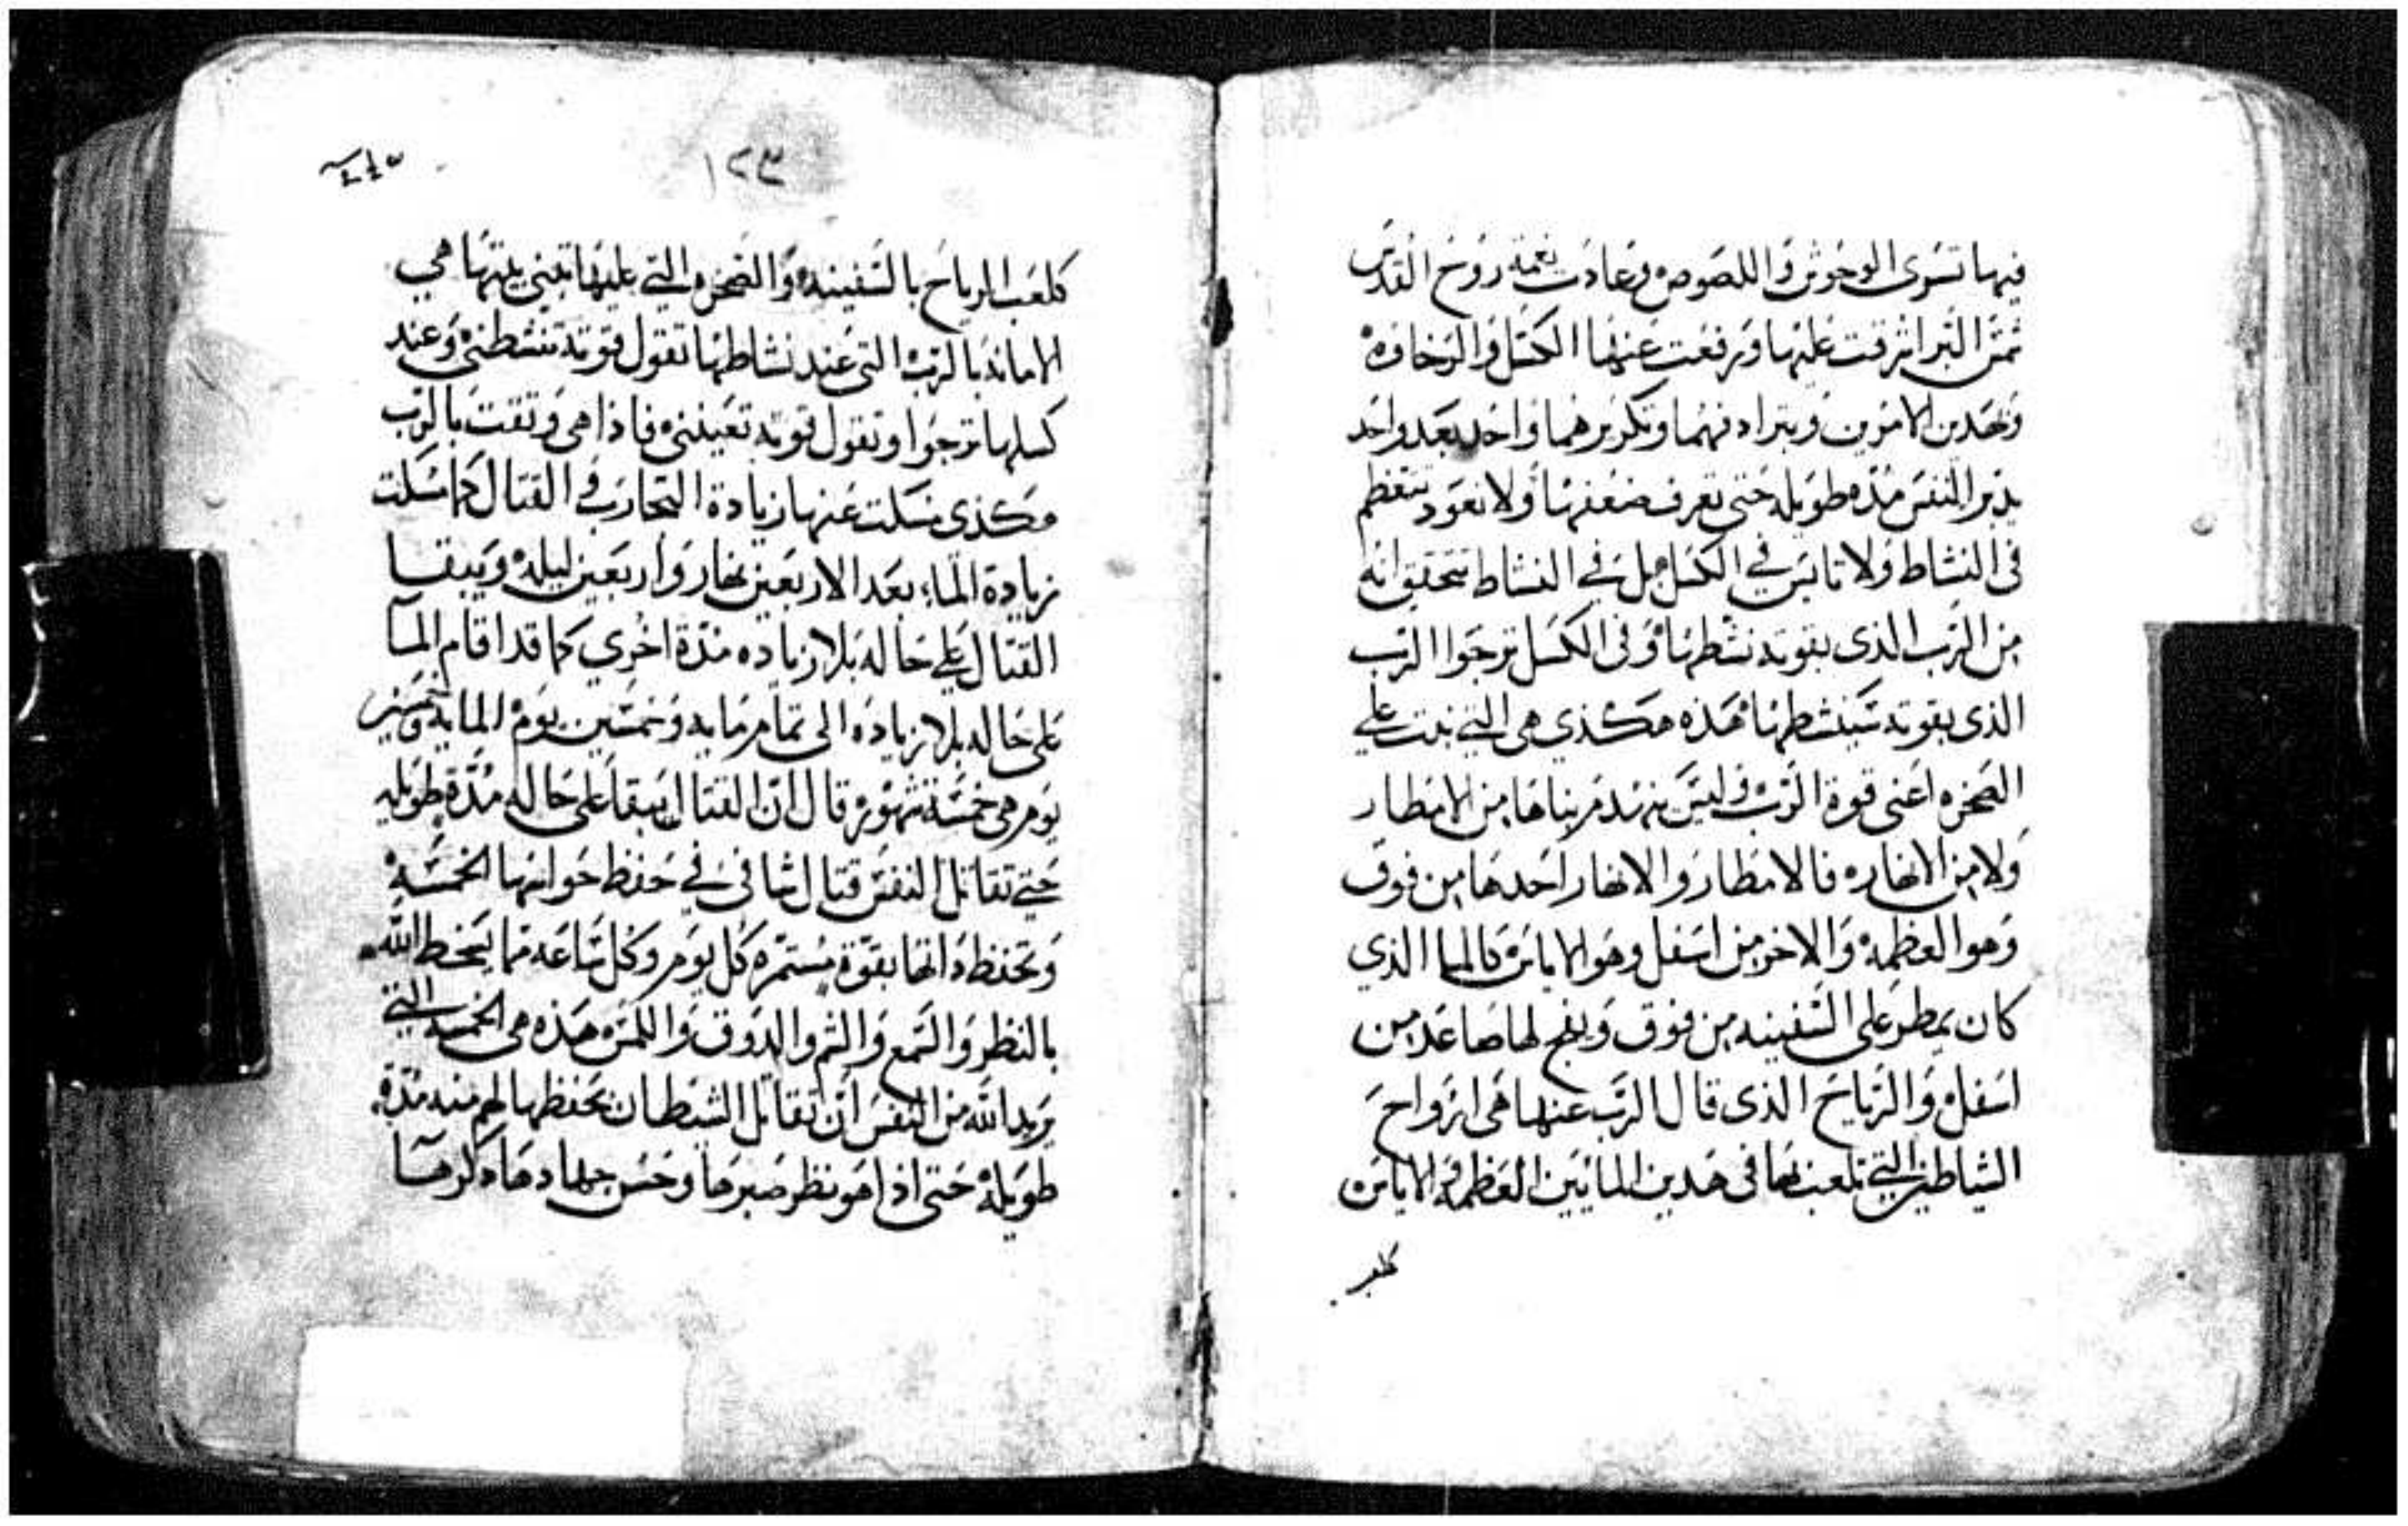 فيها تسرى الوحوش واللصوص وعادت نعمة روح القدس
شمس البر اشرقت عليها ورفعت عنها الكسل والرخاوه
وبهدين الامرين وبترادفهما وتكريرهما واحد بعد واحد
يدبر النفس مده طويله حتى تعرف ضعفها ولا تعود تتعظم
فى النشاط ولا تايس في الكسل بل في النشاط تتحقق انه
من الرب الذى بقوته نشطها وفى الكسل ترجوا الرب
الذى بقوته سينشطها هذه هكذي هى التي بنت علي
الصخره اعنى قوة الرب وليس ينهدم بناها من الامطار
ولا من الانهاره فالامطار والانهار احدها من فوق
وهو العظمه والاخر من اسفل وهو الاياس كالما الذي
كان يمطر على السفينه من فوق وينبع لها صاعد من
اسفل والرياح الذى قال الرب عنها هى ارواح
الشياطين التي تلعب بها فى هدين المايين العظمه والاياس
كلعب
١٢٣
كلعب الرياح بالسفينه والصخره التي عليها تبني بيتها هي
الامانه بالرب التى عند نشاطها تقول قوته تنشطنى وعند
كسلها ترجوا وتقول قوته تعيننى فاذا هى وتقت بالرب
هكذى نسكت عنها زيادة التجارب والقتال كما سكت
زيادة الماء بعد الاربعين نهار واربعين ليله ويبقا
القتال علي حاله بلا زياده مدة اخري كما قد اقام الما
على حاله بلا زياده الى تمام مايه وخمسين يوم المايه وخمسين
يوم هى خمسة شهور قال ان القتال يبقا على حاله مدة طويله
حتي تقاتل النفس قتال ثانى في حفظ حواسها الخمسه
وتحفظ داتها بقوة مستمره كل يوم وكل ساعه مما يسخط الله
بالنظر والسمع والشم والدوق واللمس هذه هى الخمسه التي
يريد الله من النفس ان تقاتل الشيطان بحفظها لهم منه مدة
طويله حتى اذا هو نظر صبرها وحسن جهادها دكرها